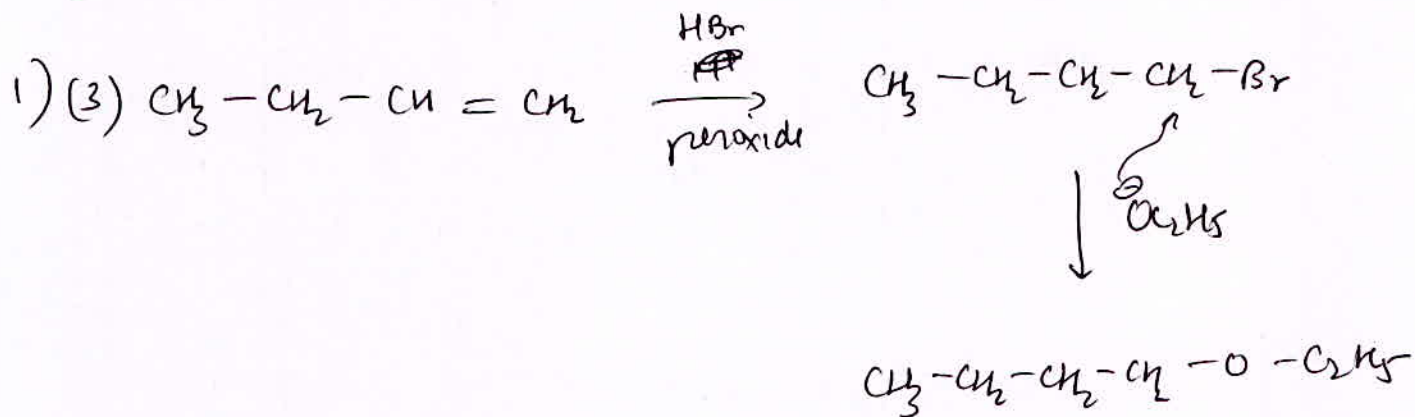 1) (3) CH₃ – CH₂ – CH = CH₂ HBr peroxide CH₃ – CH₂ – CH₂ – CH₂ – Br
⊖OC₂H₅
CH₃ – CH₂ – CH₂ – CH₂ – O – C₂H₅